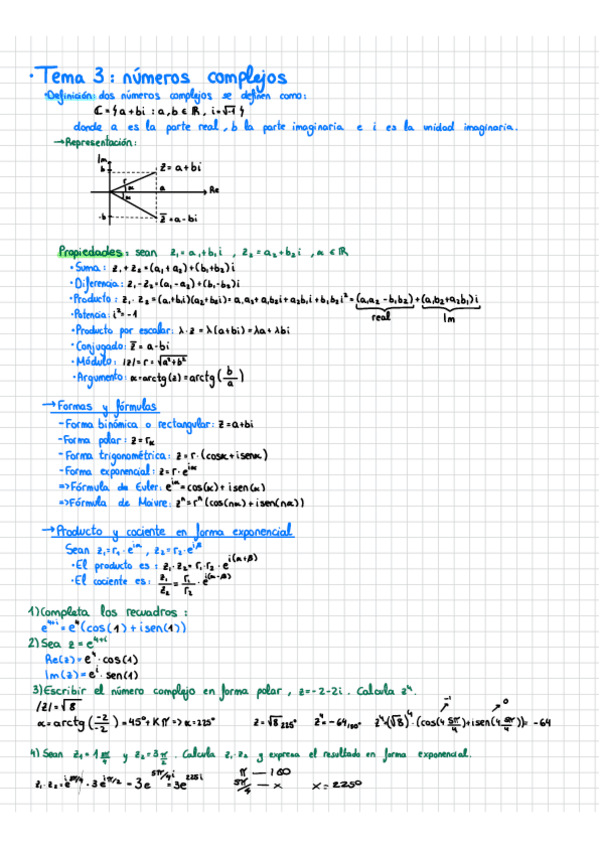 · Tema 3: números complejos
· Definición: dos números complejos se definen como:
ℂ = { a+bi : a,b ∈ ℝ, i=√-1 }
donde a es la parte real, b la parte imaginaria e i es la unidad imaginaria.
→ Representación:
Im
b
z = a+bi
r
α
α
a
Re
-b
z̄ = a-bi
Propiedades: sean z₁ = a₁+b₁i , z₂ = a₂+b₂i , α ∈ ℝ
· Suma: z₁+z₂ = (a₁+a₂)+(b₁+b₂)i
· Diferencia: z₁-z₂ = (a₁-a₂)+(b₁-b₂)i
· Producto: z₁·z₂ = (a₁+b₁i)(a₂+b₂i) = a₁a₂+a₁b₂i+a₂b₁i+b₁b₂i² = (a₁a₂-b₁b₂)+(a₁b₂+a₂b₁)i
real Im
· Potencia: i²=-1
· Producto por escalar: λ·z = λ(a+bi) = λa+λbi
· Conjugado: z̄ = a-bi
· Módulo: |z| = r = √a²+b²
· Argumento: α = arctg(z) = arctg(b/a)
→ Formas y fórmulas
- Forma binómica o rectangular: z = a+bi
- Forma polar: z = rα
- Forma trigonométrica: z = r·(cosα+isenα)
- Forma exponencial: z = r·e^iα
=> Fórmula de Euler: e^iα = cos(α)+isen(α)
=> Fórmula de Moivre: zⁿ = rⁿ(cos(nα)+isen(nα))
→ Producto y cociente en forma exponencial
Sean z₁=r₁·e^iα , z₂=r₂·e^iβ
· El producto es: z₁·z₂ = r₁·r₂·e^i(α+β)
· El cociente es: z₁/z₂ = r₁/r₂·e^i(α-β)
1) Completa los recuadros:
e^4+i = e⁴(cos(1)+isen(1))
2) Sea z = e^4+i
Re(z) = e⁴·cos(1)
Im(z) = e^i·sen(1)
3) Escribir el número complejo en forma polar, z=-2-2i. Calcula z⁴.
-1 0
|z| = √8
α = arctg(-2/-2) = 45°+Kπ => α=225° z=√8 225° z⁴=-64 z⁴=(√8)⁴·(cos(4 5π/4)+isen(4 5π/4)) = -64
4) Sean z₁ = 1 y z₂ = 3 π/2. Calcula z₁·z₂ y expresa el resultado en forma exponencial.
π — 180
5π/4 — x x=225°